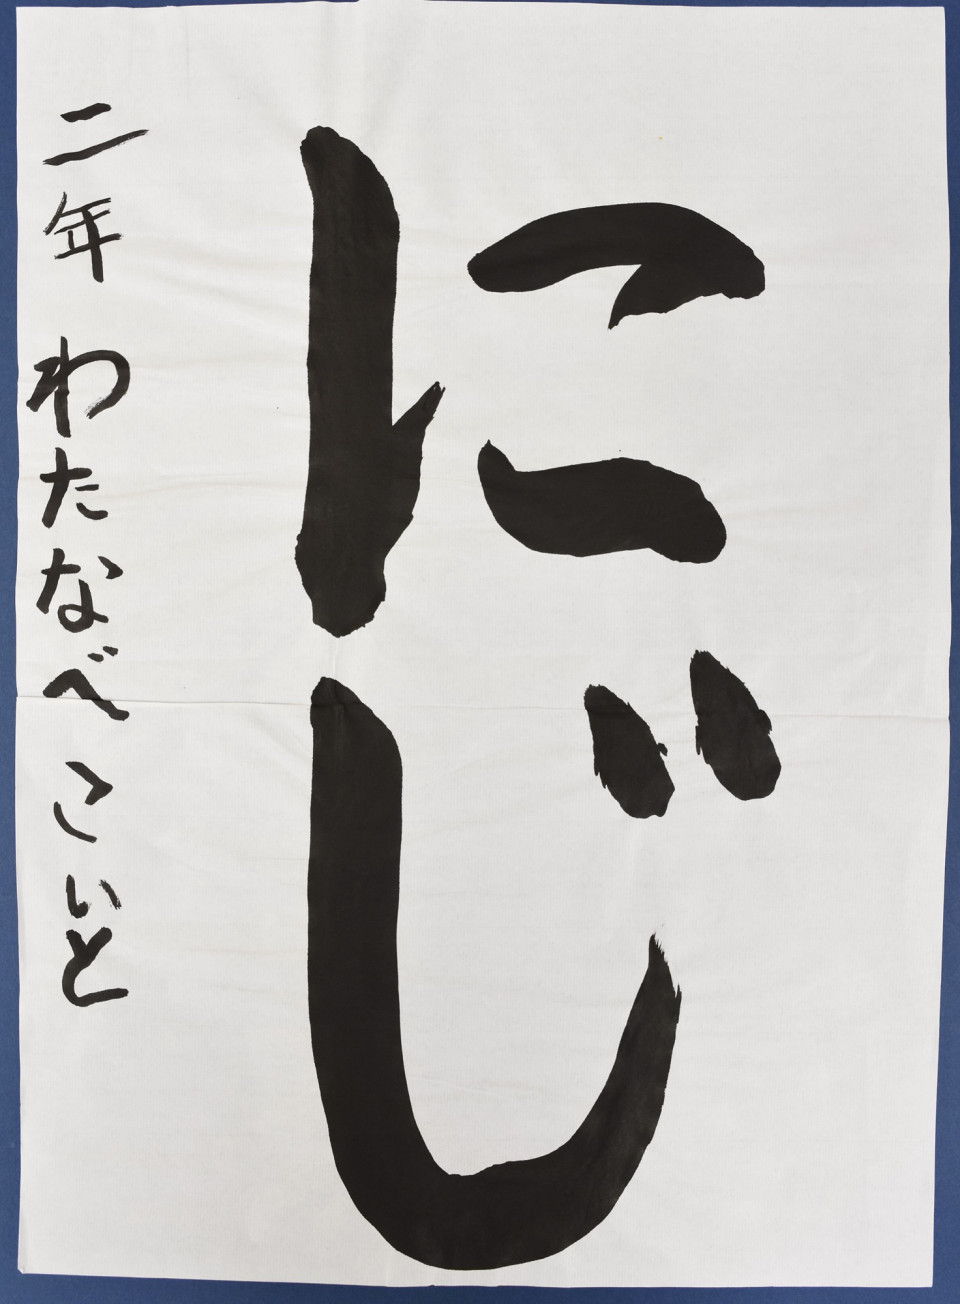 にじ
二年 わたなべ こいと